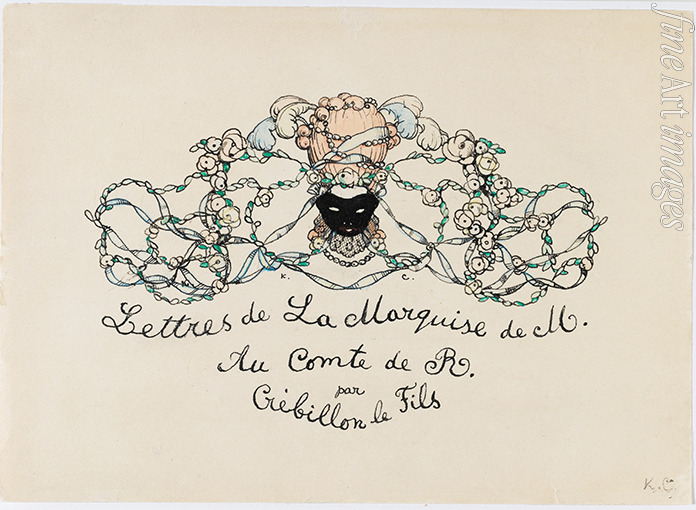 K. C.
Lettres de La Marquise de M.
Au Comte de R.
par
Crébillon le Fils
K. C.
fine Art images